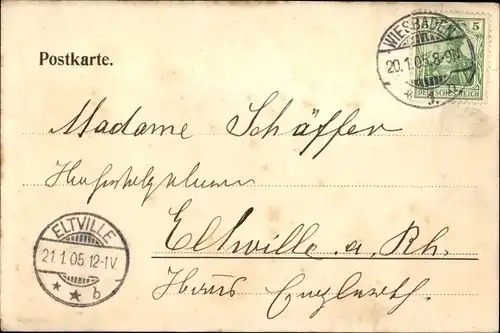 Postkarte.
WIESBADEN
20.1.05.8-9N.
* J.
5
DEUTSCHES REICH
Madame Schäffer
Eltville a. Rh.
ELTVILLE
21.1.05.12-1V.
* * b